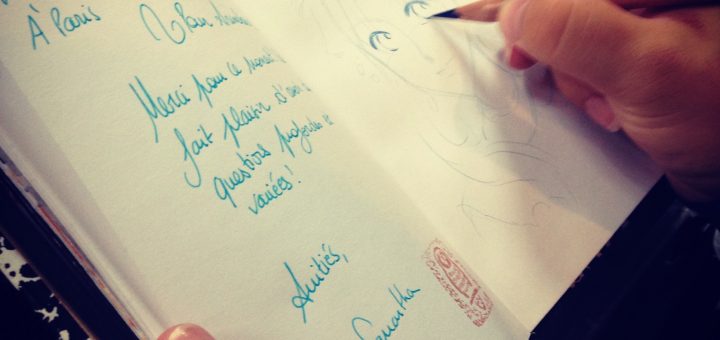 À Paris
Pour
Merci pour ce
fait plaisir d'
questions profondes &
variées!
Amitiés,
Samantha